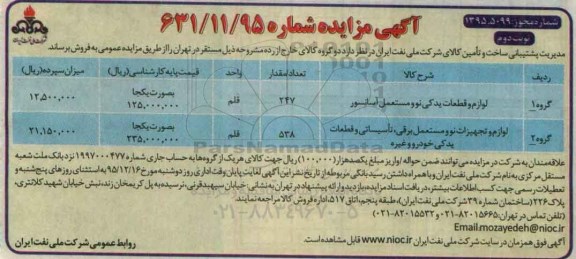 شماره مجوز: ۱۳۹۵.۵۰۹۹
نوبت دوم
آگهی مزایده شماره ۶۳۱/۱۱/۹۵
مدیریت پشتیبانی ساخت و تأمین کالای شرکت ملی نفت ایران در نظر دارد دو گروه کالای خارج از رده مشروحه ذیل مستقر در تهران را از طریق مزایده عمومی به فروش برساند.
ردیف شرح کالا تعداد/مقدار واحد قیمت پایه کارشناسی (ریال) میزان سپرده (ریال)
گروه ۱ لوازم و قطعات یدکی نو و مستعمل آسانسور ۲۴۷ قلم بصورت یکجا ۱۲۵,۰۰۰,۰۰۰ ۱۲,۵۰۰,۰۰۰
گروه ۲ لوازم و تجهیزات نو و مستعمل برقی، تأسیساتی و قطعات یدکی خودرو و غیره ۵۳۸ قلم بصورت یکجا ۲۳۵,۰۰۰,۰۰۰ ۲۱,۱۵۰,۰۰۰
علاقه‌مندان به شرکت در مزایده می‌توانند ضمن حواله/واریز مبلغ یکصد هزار (۱۰۰,۰۰۰) ریال جهت کالای هر یک از گروه‌ها به حساب جاری شماره ۱۹۹۷۰۰۰۴۷۷ نزد بانک ملت شعبه
مستقل مرکزی به نام شرکت ملی نفت ایران و با همراه داشتن رسید بانکی مربوطه از تاریخ نشر این آگهی لغایت پایان وقت اداری روز دوشنبه مورخ ۹۵/۱۲/۱۶ به استثنای روزهای پنج‌شنبه و
تعطیلات رسمی جهت کسب اطلاعات بیشتر، دریافت اسناد مزایده، بازدید و ارائه پیشنهاد در تهران به نشانی: خیابان سپهبد قرنی، نرسیده به پل کریمخان زند، نبش خیابان شهید کلانتری،
پلاک ۲۲۶ (ساختمان شماره ۳۹ شرکت ملی نفت ایران)، طبقه پنجم، اتاق ۵۱۷، اداره فروش کالا مراجعه نمایند.
(تلفن تماس در تهران: ۸۲۰۱۵۶۶۵-۰۲۱ و ۸۲۰۱۵۵۳۲-۰۲۱)
Email:mozayedeh@nioc.ir
آگهی فوق همزمان در سایت شرکت ملی نفت ایران www.nioc.ir قابل مشاهده است.
روابط عمومی شرکت ملی نفت ایران
ParsNamadData
۰۲۱-۸۸۳۴۹۶۷۰-۵